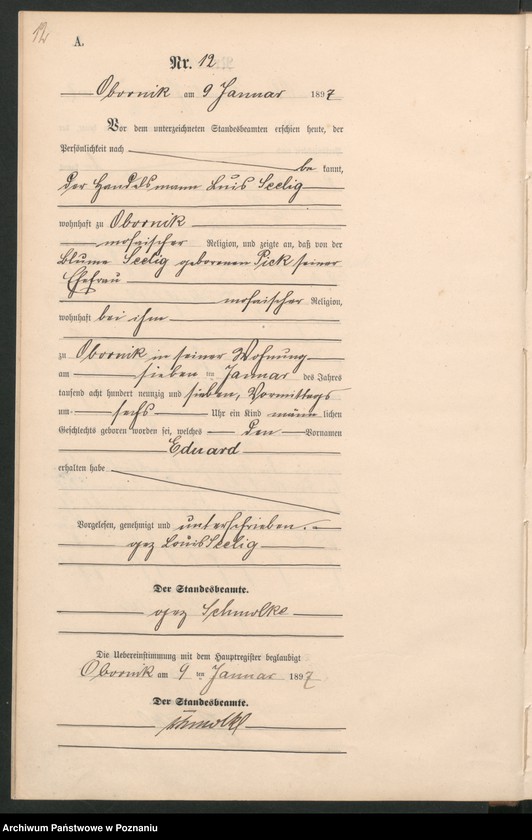 12
A.
Nr. 12
Obornik am 9 Januar 1897
Vor dem unterzeichneten Standesbeamten erschien heute, der
Persönlichkeit nach
be kannt,
der Handelsmann Luis Seelig
wohnhaft zu Obornik
mosaischer Religion, und zeigte an, daß von der
Blume Seelig geborenen Pick seiner
Ehefrau
mosaischer Religion,
wohnhaft bei ihm
zu Obornik in seiner Wohnung
am sieben ten Januar des Jahres
tausend acht hundert neunzig und sieben, Vormittags
um sechs Uhr ein Kind männ lichen
Geschlechts geboren worden sei, welches den Vornamen
Eduard
erhalten habe
Vorgelesen, genehmigt und unterschrieben.
gez Louis Seelig
Der Standesbeamte.
gez Schmolke
Die Uebereinstimmung mit dem Hauptregister beglaubigt
Obornik am 9 ten Januar 1897
Der Standesbeamte.
Schmolke
Archiwum Państwowe w Poznaniu